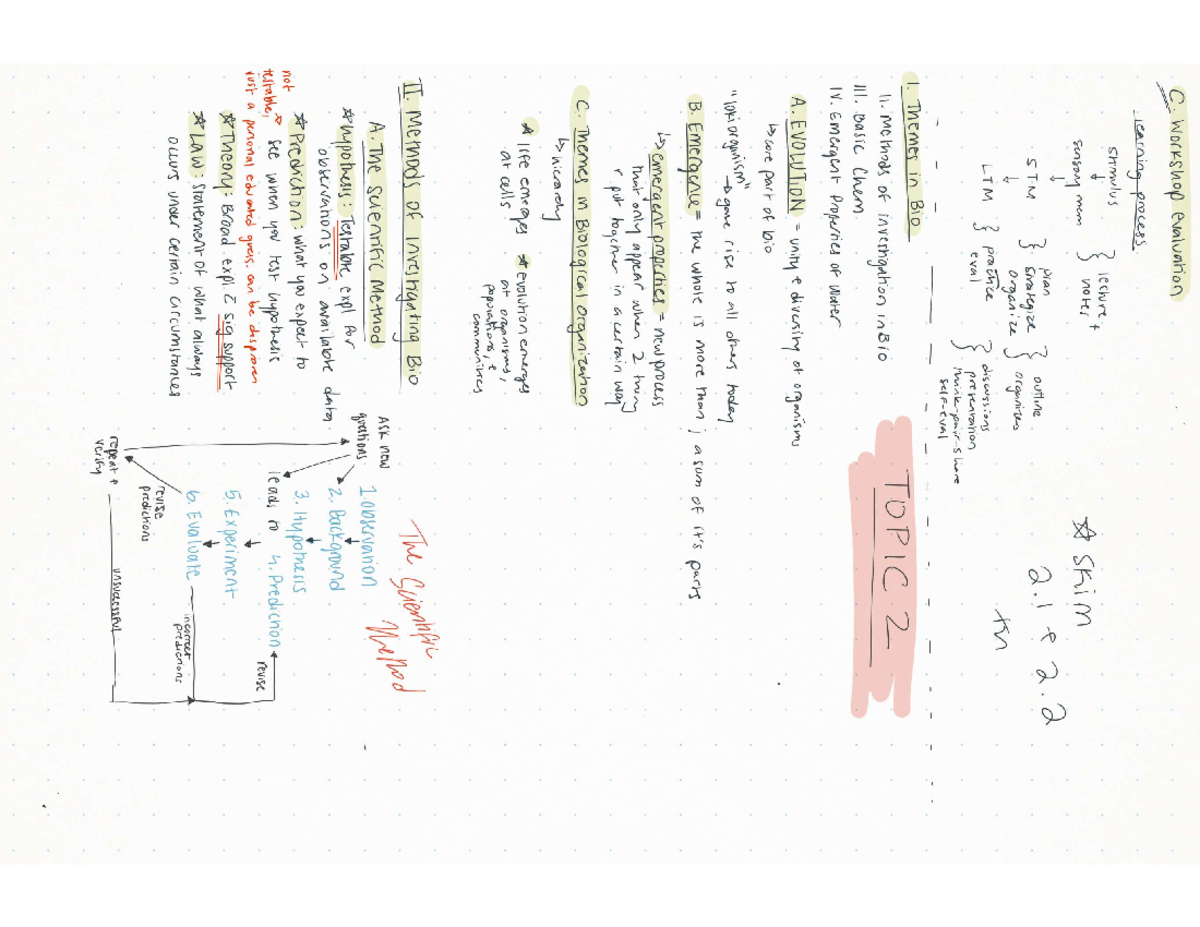 C. Workshop evaluation
learning process
stimulus
↓
sensory mem
} lecture +
notes
↓
STM
} plan
strategize
organize
} outline
organizers
↓
LTM
} practice
eval
} discussions
presentation
think-pair-share
self-eval
☆ skim
2.1 + 2.2
TOPIC 2
I. Themes in Bio
II. Methods of investigation in Bio
III. Basic Chem.
IV. Emergent Properties of Water
A. EVOLUTION = unity + diversity of organisms
↳ core part of bio
→ gave rise to all others today
B. Emergence = the whole is more than; a sum of it's parts
↳ emergent properties = new process
that only appear when 2 thing
r put together in a certain way
C. Themes in Biological Organization
↳ hierarchy
★ life emerges
at cells
★ evolution emerges
at organisms,
populations, +
communities
II. Methods of Investigating Bio
A. The Scientific Method
★ Hypothesis: Testable expl for
observations on available data
★ Prediction: what you expect to
see when you test hypothesis
not
testable,
just a personal educated guess. can be disproven
★ Theory: Broad expl c̄ sig support
★ LAW: statement of what always
occurs under certain circumstances
The Scientific
Method
Ask new
questions
1. observation
2. Background
3. Hypothesis
leads to
4. Prediction
5. Experiment
6. Evaluate
revise
incorrect
predictions
revise
predictions
repeat +
verify
unsuccessful